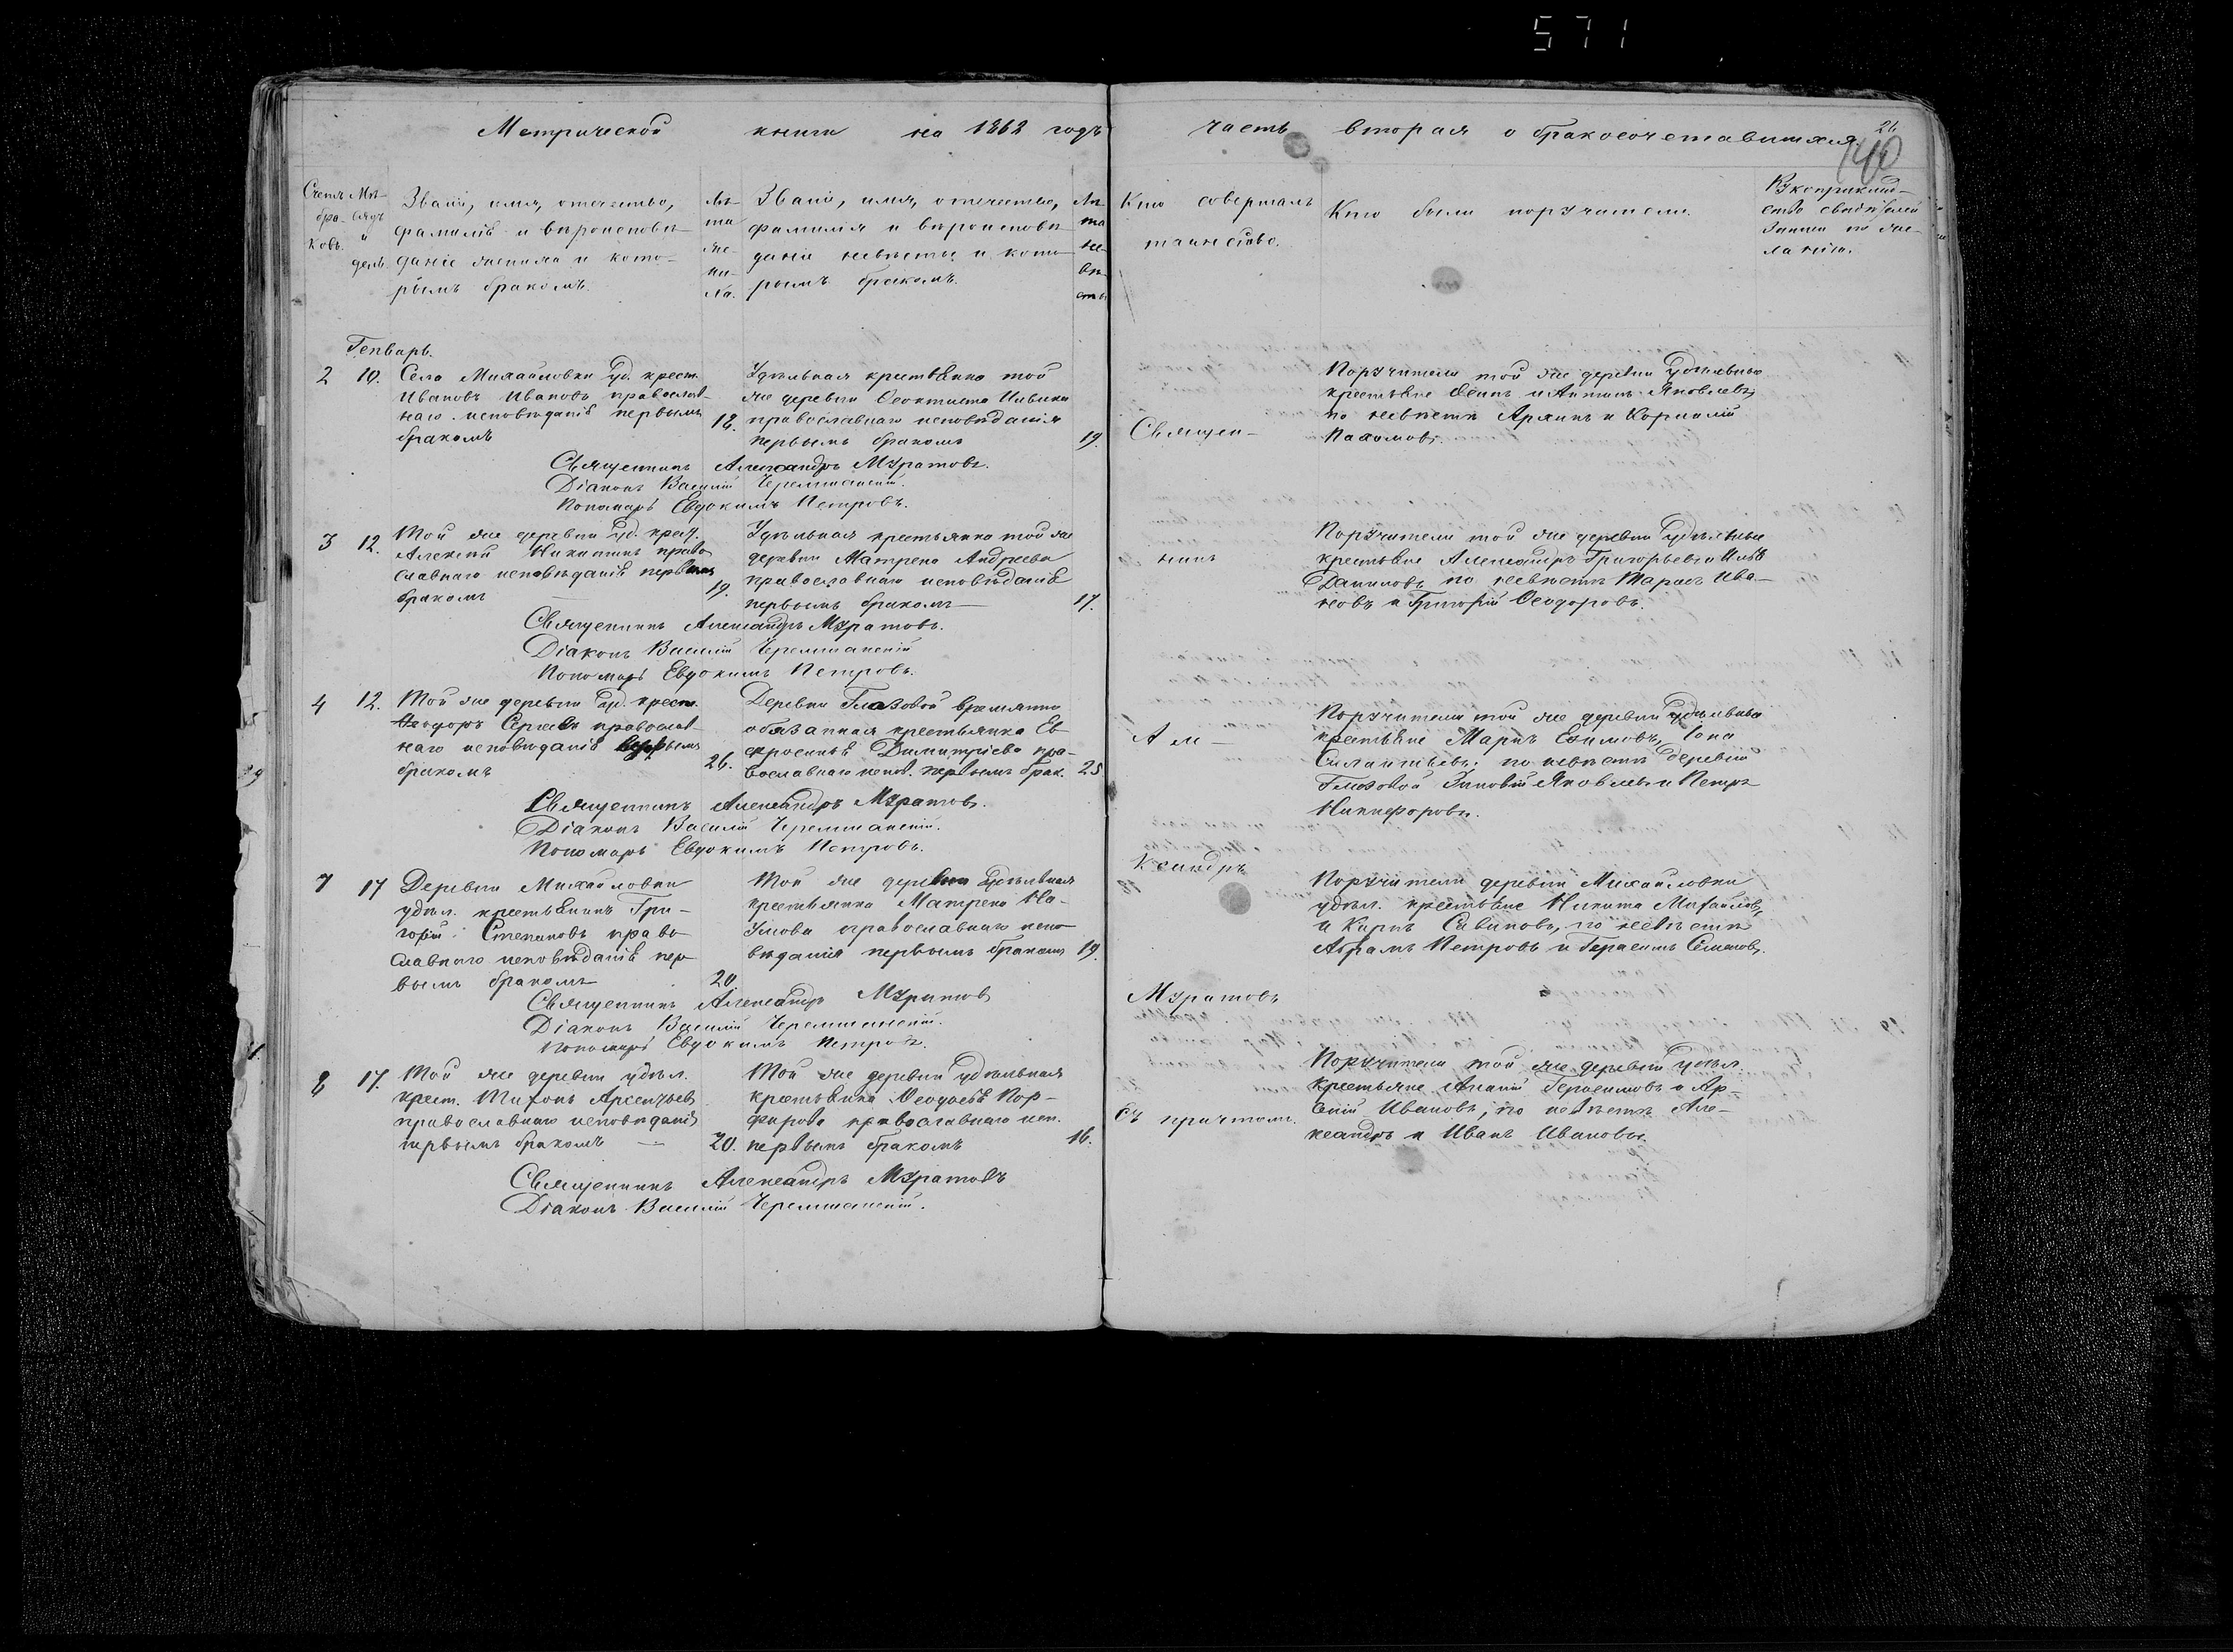 571
Метрической книги на 1862 годъ
часть вторая о бракосочетавшихся.
26
140
Счетъ бра-
ковъ.
Мѣ-
сяцъ
и
день
Званіе, имя, отчество,
фамилія и вѣроисповѣ-
даніе жениха и кото-
рымъ бракомъ.
Лѣ-
та
же-
ни-
ха.
Званіе, имя, отчество,
фамилія и вѣроисповѣ-
даніе невѣсты и кото-
рымъ бракомъ.
Лѣ-
та
не-
вѣ-
сты
Кто совершалъ
таинство.
Кто были поручители.
ство свидѣтелей
записи по же-
ланію.
Генварь.
2 10. Села Михайловки Уд. крест.
Иванъ Ивановъ православ-
наго исповѣданія первымъ
бракомъ
18.
Удѣльная крестьянка той
же деревни Ѳеоктиста
православнаго исповѣданія
первымъ бракомъ 19.
Поручители той же деревни Удѣльные
крестьяне Осипъ и Антипъ Яковлевы
по невѣстѣ Архипъ и Корнилій
Пахомовы.
Священникъ Александръ Муратовъ.
Діаконъ Василій Черемшанскій.
Пономарь Евдокимъ Петровъ.
3 12. Той же деревни Уд. крест.
Алексѣй Никитинъ право
славнаго исповѣданія первымъ
бракомъ — 19.
Удѣльная крестьянка той же
деревни Матрена Андреева
православнаго исповѣданія
первымъ бракомъ — 17.
Поручители той же деревни Удѣльные
крестьяне Александръ Григорьевъ и Илья
Даниловъ по невѣстѣ Тарасъ Ива-
новъ и Григорій Ѳеодоровъ.
Священникъ Александръ Муратовъ.
Діаконъ Василій Черемшанскій
Пономарь Евдокимъ Петровъ.
4 12. Той же деревни Уд. крест.
Ѳеодоръ Сергеевъ православ-
наго исповѣданія вторымъ
бракомъ 26.
Деревни Глазовой временно
обязанная крестьянка Ев
фросинья Димитріева пра-
вославнаго испов. первымъ брак. 25
Поручители той же деревни удѣльные
крестьяне Маркъ Ефимовъ, Іона
Силантьевъ; по невѣстѣ деревни
Глазовой Зиновій Яковлевъ и Петръ
Никифоровъ.
Священникъ Александръ Муратовъ.
Діаконъ Василій Черемшанскій.
Пономарь Евдокимъ Петровъ.
7 17 Деревни Михайловки
удѣл. крестьянинъ Гри-
горій Степановъ право
славнаго исповѣданія пер-
вымъ бракомъ 20
Той же деревни Удѣльная
крестьянка Матрена На-
умова православнаго испо
вѣданія первымъ бракомъ 19.
Поручители деревни Михайловки
удѣл. крестьяне Никита Михайловъ,
и Карпъ Савиновъ, по невѣстѣ
Абрамъ Петровъ и Герасимъ Семеновъ.
Священникъ Александръ Муратовъ
Діаконъ Василій Черемшанскій.
Пономарь Евдокимъ Петровъ.
8 17. Той же деревни удѣл.
крест. Тихонъ Арсентьевъ
православнаго исповѣданія
первымъ бракомъ — 20.
Той же деревни удѣльная
крестьянка Ѳеодосья Пор-
фирова православнаго исп.
первымъ бракомъ 16.
Поручители той же деревни Удѣл.
крестьяне Ананій Герасимовъ и Ар-
сеній Ивановъ, по невѣстѣ Але-
ксандръ и Иванъ Ивановы.
Священникъ Александръ Муратовъ
Діаконъ Василій Черемшанскій.
Священ-
никъ
Але-
ксандръ
Муратовъ
съ причтомъ.